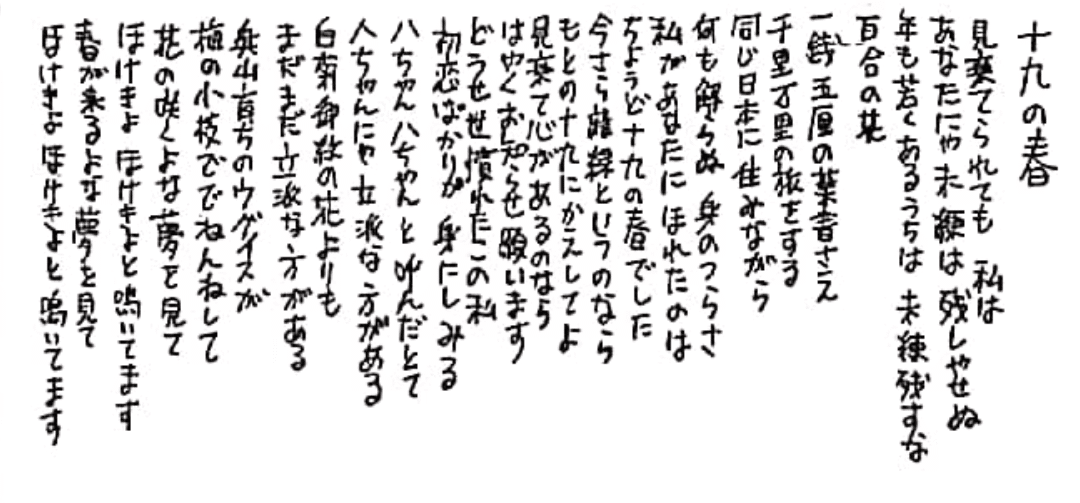 十九の春
見棄てられても 私は
あなたにや未練は残しやせぬ
年も若くあるうちは 未練残すな
百合の花
一銭五厘の葉書さえ
千里万里の旅をする
同じ日本に住みながら
何も解らぬ 身のつらさ
私があなたにほれたのは
ちようど十九の春でした
今さら離縁というのなら
もとの十九にかえしてよ
見棄て心があるのなら
はやくお知らせ願います
どうせ世慣れたこの私
初恋ばかりが身にしみる
八ちやん八ちやんと呼んだとて
人ちやんにや立派な方がある
白菊御紋の花よりも
まだまだ立派な方がある
奥山育ちのウグイスが
梅の小枝ででねんねして
花の咲くよな夢を見て
ほけきよ ほけきよと鳴いてます
春が来るよな夢を見て
ほけきよほけきよと鳴いてます